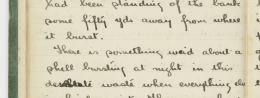 had been standing of the bank
some fifty yds away from where
it burst.
There is something weird about a
shell bursting at night in this
desolate waste when everything else